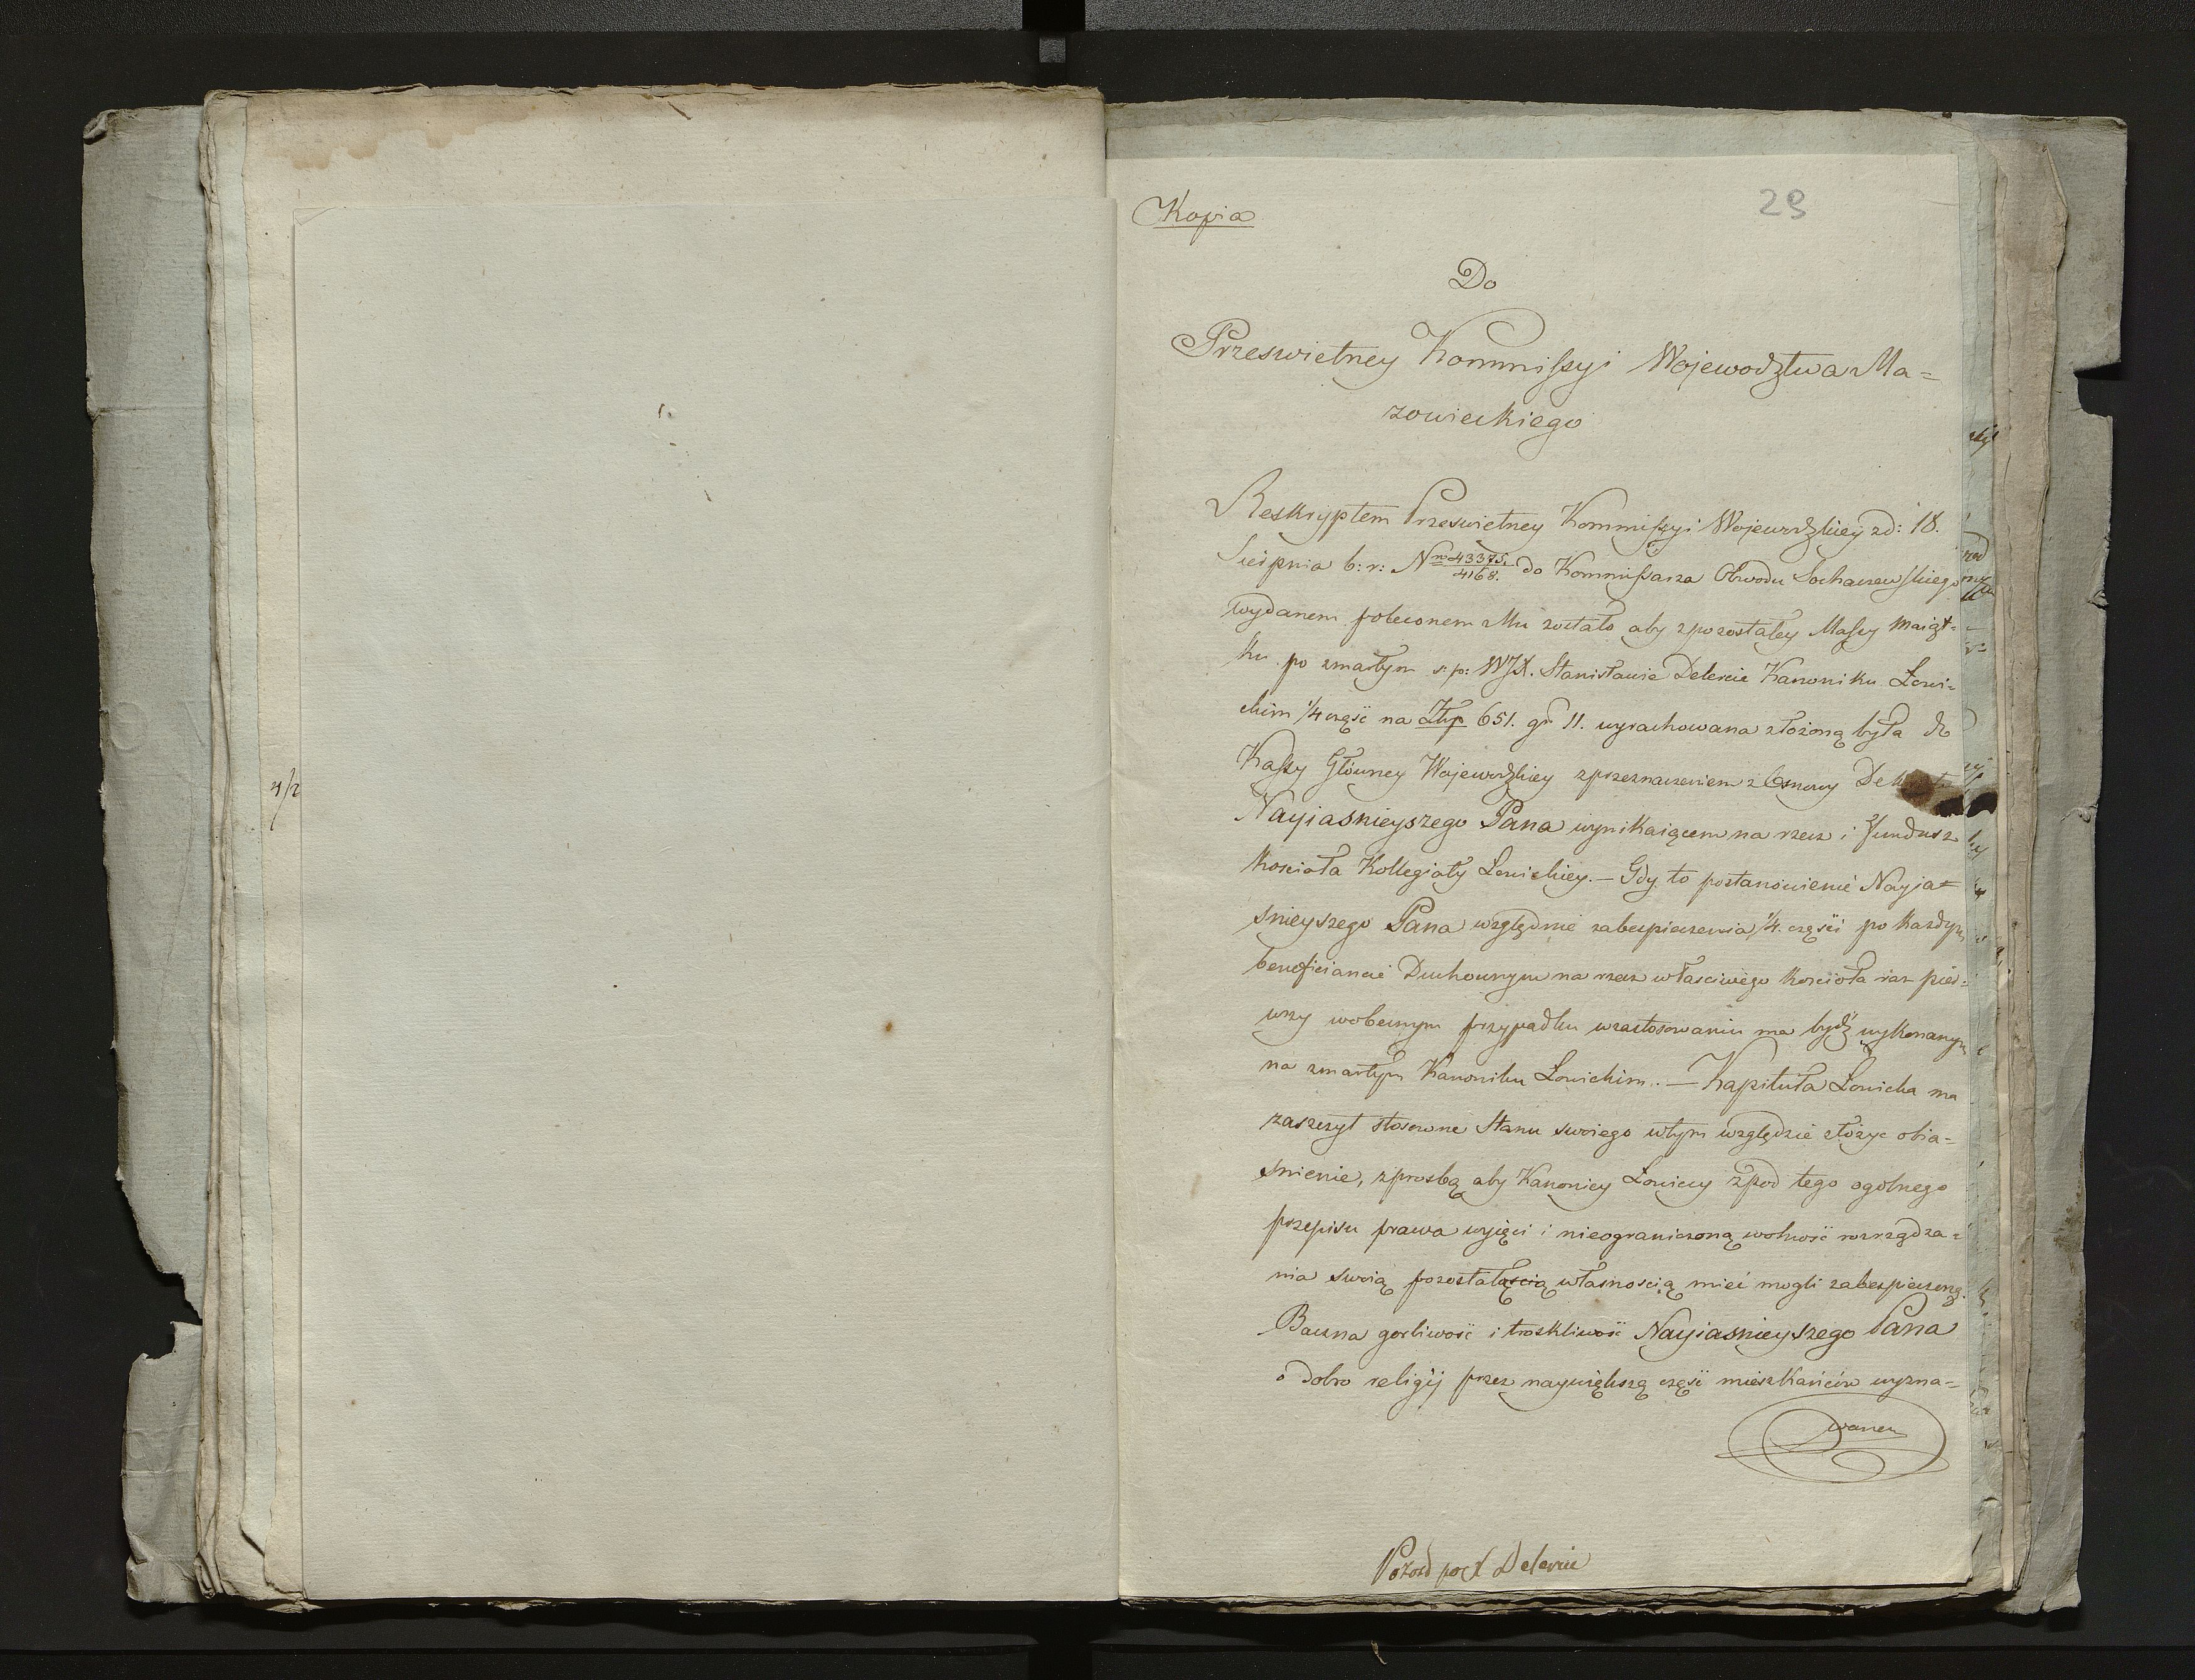 29
Kopia
Do
Przeswietney Kommissyi Wojewodztwa Ma=
zowieckiego
Reskryptem Przeswietney Kommissyi Wojewodzkiey zd: 18.
Sierpnia b: r: Nro 43375./4168. do Kommissarza Obwodu Sochaczewskiego
wydanem poleconem Mu zostało aby zpozostałey Massy maiąt=
ku po zmarłym s: p: WJX. Stanisławie Delercie Kanoniku Łowi=
ckim 1/4 część na Złp 651. gr 11. wyrachowana złożoną była do
Kassy Główney Wojewodzkiey zprzeznaczeniem z Osnowy
Nayiasnieyszego Pana wynikaiącem na rzecz i fundusz
Kosciała Kollegiaty Łowickiey. — Gdy to postanowienie Nayja=
snieyszego Pana względnie zabezpieczenia 1/4. części po każdym
beneficiancie Duchownym na rzecz własciwego Kościoła raz pier=
wszy wobecnym przypadku wzastosowaniu ma bydź wykonanym
na zmarłym Kanoniku Łowickim. — Kapituła Łowicka ma
zaszczyt stosowne Stanu swoiego wtym względzie złożyć obia=
snienie, zprosbą aby Kanonicy Łowiccy zpod tego ogolnego
przepisu prawa wyięci i nieograniczoną wolność rozrządza=
nia swoią pozostałością własnoscią mieć mogli zabezpieczoną.
Baczna gorliwość i troskliwość Nayiasnieyszego Pana
o dobro religij przez naywiększą część mieszkańców wyzna=
waney
4/2
po X Delercie